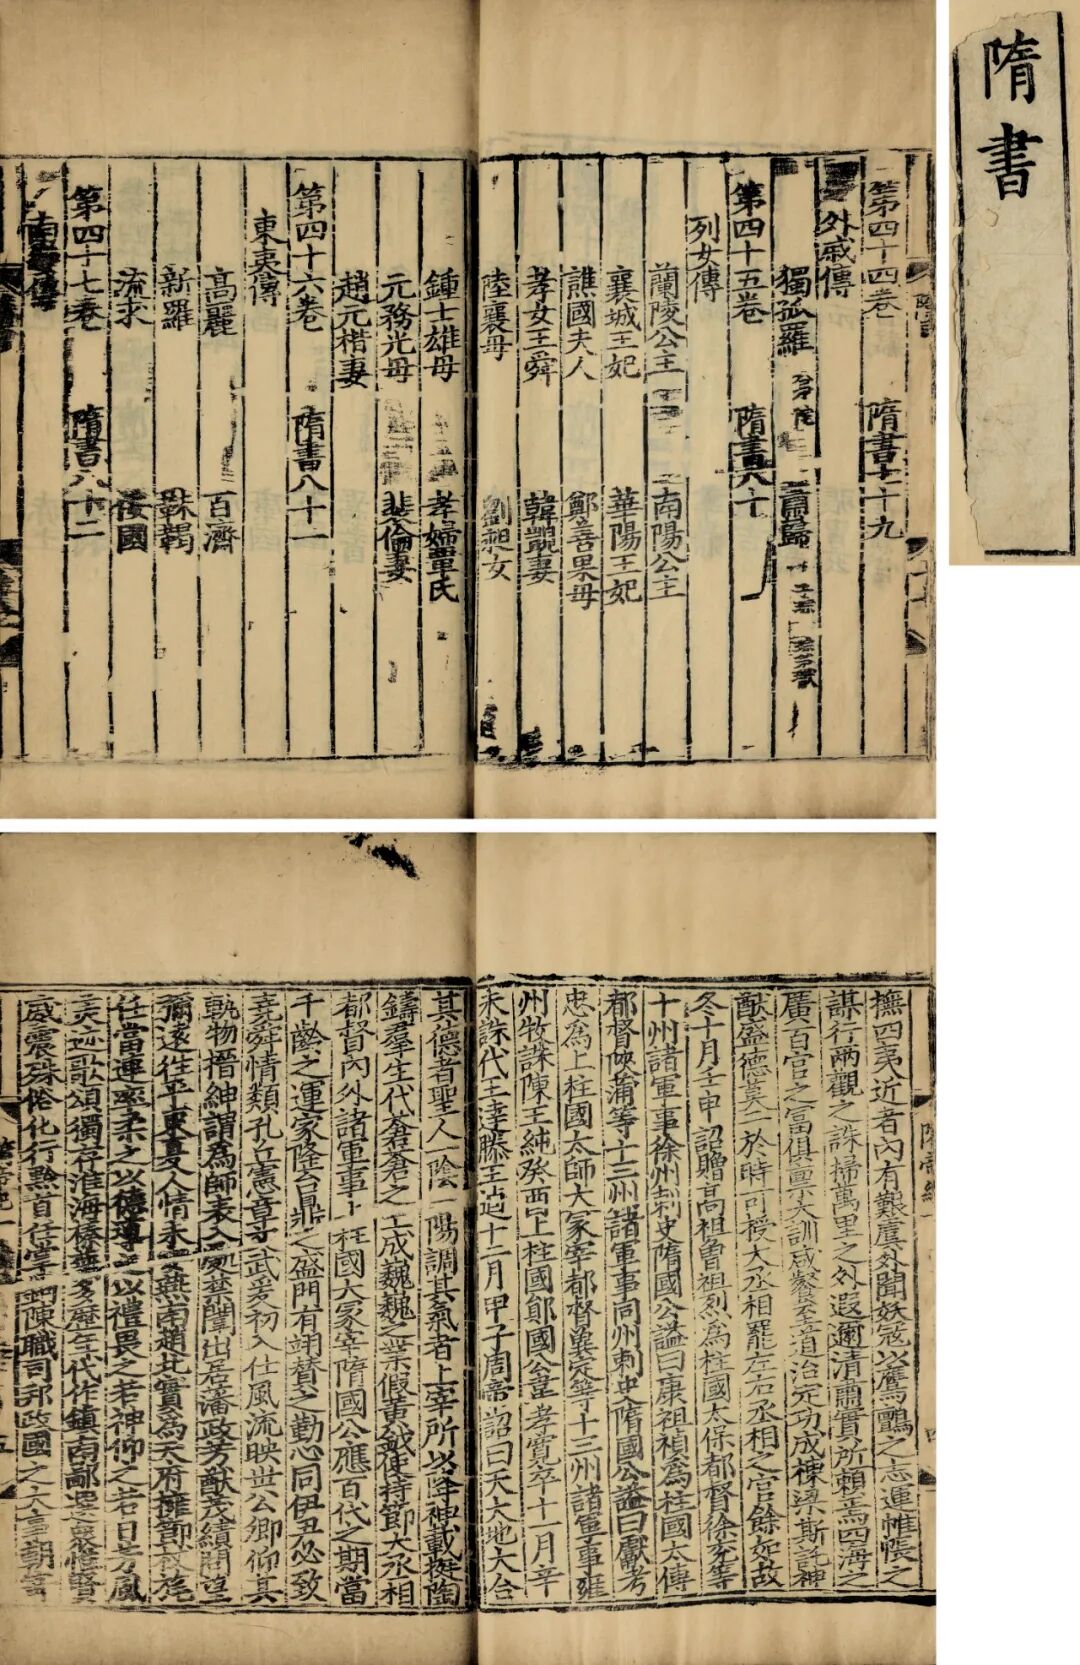 隋書
第四十四卷 隋書七十九
外戚傳
獨孤羅 蕭巋
第四十五卷 隋書八十
列女傳
蘭陵公主 南陽公主
襄城王妃 華陽王妃
譙國夫人 鄭善果母
孝女王舜 韓覬妻
陸襄母 劉昶女
鍾士雄母 孝婦覃氏
元務光母 裴倫妻
趙元楷妻
第四十六卷 隋書八十一
東夷傳
高麗 百濟
新羅 靺鞨
流求 倭國
第四十七卷 隋書八十二
南蠻傳
撫四夷近者內有艱虞外聞妖寇以鷹鸇之志運帷帳之
謀行兩觀之誅掃萬里之外遐邇清肅實所賴焉四海之
廣百官之富俱稟大訓咸餐至道治定功成棟梁斯託神
猷盛德莫二於時可授大丞相罷左右丞相之官餘如故
冬十月壬申詔贈高祖曾祖烈為柱國太保都督徐兗等
十州諸軍事徐州刺史隋國公謚曰康祖禎為柱國太傅
都督陝蒲等十三州諸軍事同州刺史隋國公謚曰獻考
忠為上柱國太師大冢宰都督冀定等十三州諸軍事雍
州牧誅陳王純癸酉上柱國鄖國公韋孝寬卒十一月辛
未誅代王達滕王逌十二月甲子周帝詔曰天大地大合
其德者聖人一陰一陽調其氣者上宰所以降神載挺陶
鑄羣生代蒼蒼之工成巍巍之業假黃鉞使持節大丞相
都督內外諸軍事上柱國大冢宰隋國公應百代之期當
千齡之運家隆台鼎之盛門有翊贊之勤心同伊尹必致
堯舜情類孔丘憲章文武爰初入仕風流映世公卿仰其
軌物搢紳謂為師表入處禁闈出居藩政芳猷茂績問望
彌遠往平東夏人情未安燕南趙北實為天府擁節杖旄
任當連率柔之以德導之以禮畏之若神仰之若日芳風
美迹歌頌獨存淮海榛蕪多歷年代作鎮南鄙選眾惟賢
威震殊俗化行黔首任掌鉤陳職司邦政國之大事朝寄